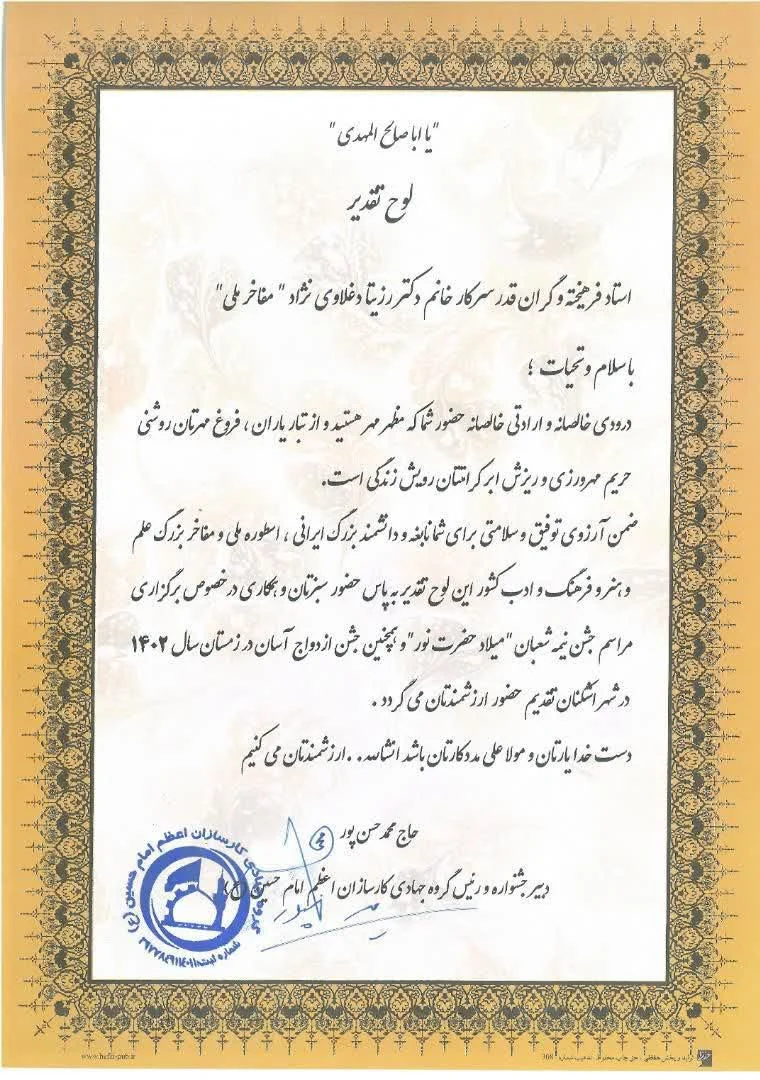 "یا اباصالح المهدی"
لوح تقدیر
استاد فرهیخته و گران قدر سرکار خانم دکتر رزیتا دغلاوی نژاد "مفاخر ملی"
با سلام و تحیات ؛
درودی خالصانه و ارادتی خالصانه حضور شما که مظهر مهر هستید و از تبار یاران ، فروغ مهرتان روشنی
حریم مهرورزی و ریزش ابر کرامتتان رویش زندگی است.
ضمن آرزوی توفیق و سلامتی برای شما نابغه و دانشمند بزرگ ایرانی ، اسطوره ملی و مفاخر بزرگ علم
و هنر و فرهنگ و ادب کشور این لوح تقدیر به پاس حضور سبزتان و همکاری در خصوص برگزاری
مراسم جشن نیمه شعبان "میلاد حضرت نور" و همچنین جشن ازدواج آسان در زمستان سال ۱۴۰۲
در شهر اشکنان تقدیم حضور ارزشمندتان می گردد .
دست خدا یارتان و مولا علی مددکارتان باشد انشالله. . ارزشمندتان می کنیم
حاج محمد حسن پور
دبیر جشنواره و رئیس گروه جهادی کارسازان اعظم امام حسین (ع)
گروه جهادی کارسازان اعظم امام حسین (ع)
شماره ثبت:
www.hefzi-pub.ir